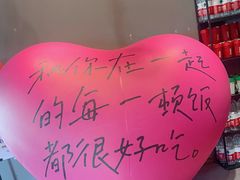 和你在一起
的每一顿饭
都很好吃。